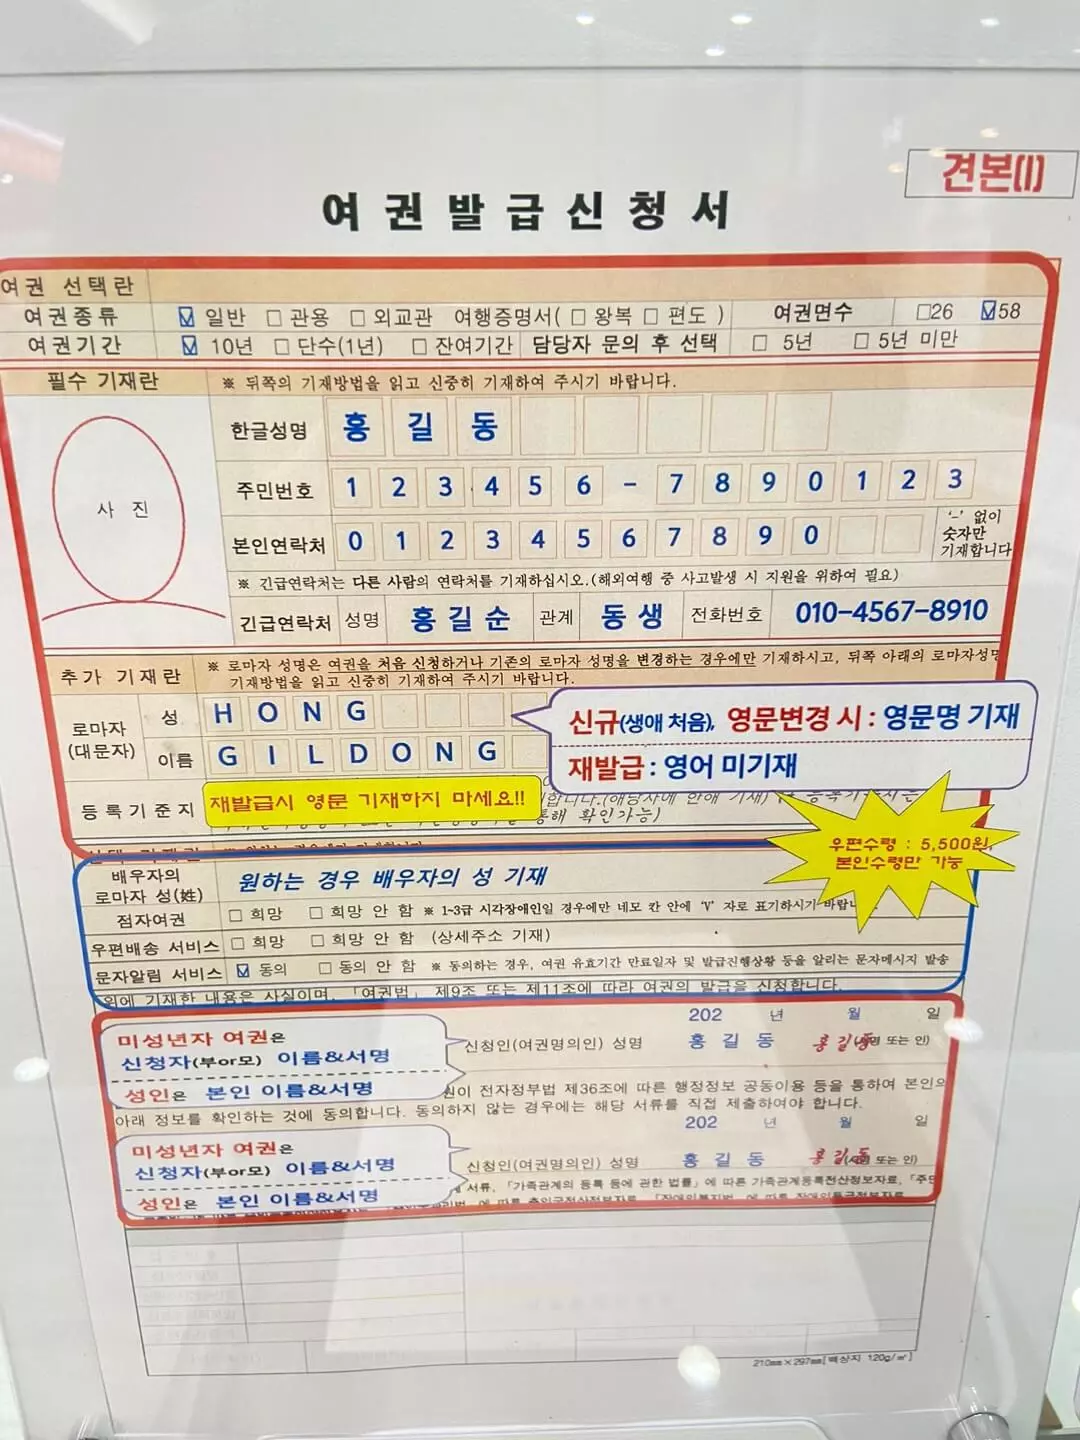 견본(1)
여권발급신청서
여권 선택란
여권종류 ☑ 일반 □ 관용 □ 외교관 여행증명서( □ 왕복 □ 편도 ) 여권면수 □26 ☑58
여권기간 ☑ 10년 □ 단수(1년) □ 잔여기간 담당자 문의 후 선택 □ 5년 □ 5년 미만
필수 기재란 ※ 뒤쪽의 기재방법을 읽고 신중히 기재하여 주시기 바랍니다.
사 진
한글성명 홍 길 동
주민번호 1 2 3 4 5 6 - 7 8 9 0 1 2 3
본인연락처 0 1 2 3 4 5 6 7 8 9 0 '-' 없이 숫자만 기재합니다
※ 긴급연락처는 다른 사람의 연락처를 기재하십시오.(해외여행 중 사고발생 시 지원을 위하여 필요)
긴급연락처 성명 홍길순 관계 동생 전화번호 010-4567-8910
추가 기재란 ※ 로마자 성명은 여권을 처음 신청하거나 기존의 로마자 성명을 변경하는 경우에만 기재하시고, 뒤쪽 아래의 로마자성명
기재방법을 읽고 신중히 기재하여 주시기 바랍니다.
로마자 (대문자) 성 H O N G
이름 G I L D O N G
신규(생애 처음), 영문변경 시 : 영문명 기재
재발급 : 영어 미기재
등록기준지
재발급시 영문 기재하지 마세요!!
확인가능)
우편수령 : 5,500원,
본인수령만 가능
배우자의 로마자 성(姓) 원하는 경우 배우자의 성 기재
점자여권 □ 희망 □ 희망 안 함 ※ 1~3급 시각장애인일 경우에만 네모 칸 안에 'V' 자로 표기하시기 바랍니
우편배송 서비스 □ 희망 □ 희망 안 함 (상세주소 기재)
문자알림 서비스 ☑ 동의 □ 동의 안 함 ※ 동의하는 경우, 여권 유효기간 만료일자 및 발급진행상황 등을 알리는 문자메시지 발송
위에 기재한 내용은 사실이며, 「여권법」 제9조 또는 제11조에 따라 여권의 발급을 신청합니다.
202 년 월 일
미성년자 여권은
신청자(부or모) 이름&서명
성인은 본인 이름&서명
신청인(여권명의인) 성명 홍 길 동 홍길동 (서명 또는 인)
원이 전자정부법 제36조에 따른 행정정보 공동이용 등을 통하여 본인의
아래 정보를 확인하는 것에 동의합니다. 동의하지 않는 경우에는 해당 서류를 직접 제출하여야 합니다.
202 년 월 일
미성년자 여권은
신청자(부or모) 이름&서명
성인은 본인 이름&서명
신청인(여권명의인) 성명 홍 길 동 홍길동 (서명 또는 인)
서류, 「가족관계의 등록 등에 관한 법률」에 따른 가족관계등록전산정보자료, 「주민
210㎜×297㎜[백상지 120g/㎡]